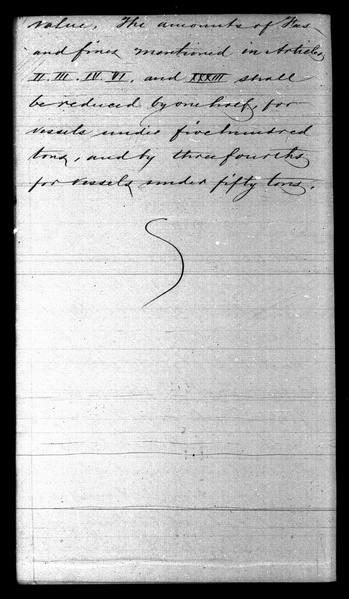 value. The amounts of Fees
and fines mentioned in Articles
II. III. IV. VI. and XXXIII shall
be reduced by one half, for
vessels under five hundred
tons, and by three fourths
for vessels under fifty tons.